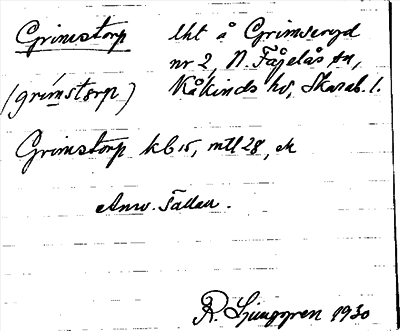 Grimstorp lht å Grimseryd
nr 2, N. Fågelås sn,
(grímstørp) Kåkinds hd, Skarab. l.
Grimstorp kb 15, mtl 28, ek
Anv. Tallen.
R. Ljunggren 1930